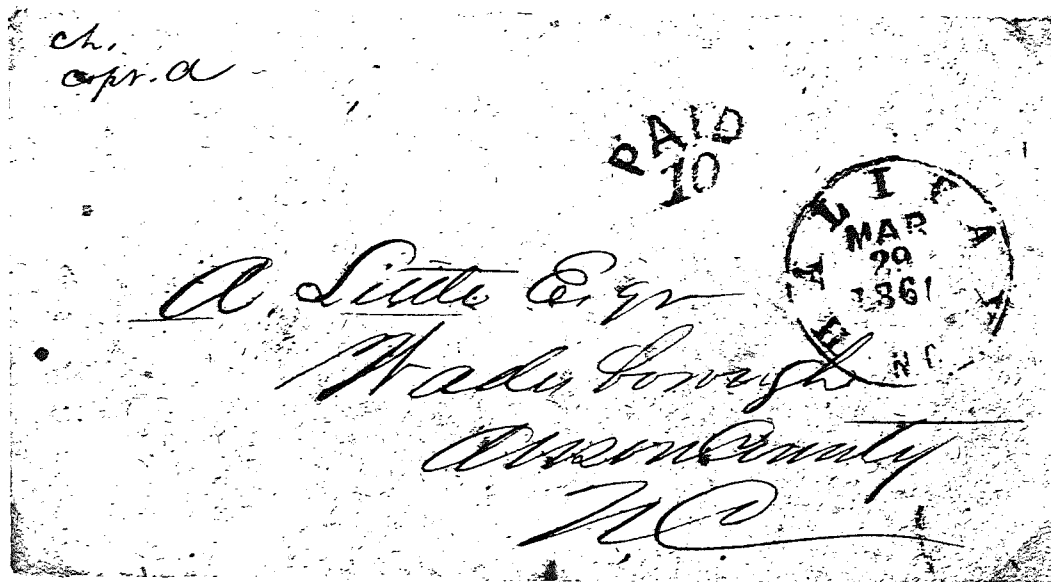 ch.
PAID
10
HALIFAX N.C.
MAR
29
1861
A. Little Esqr
Wadesborough
Anson County
N.C.